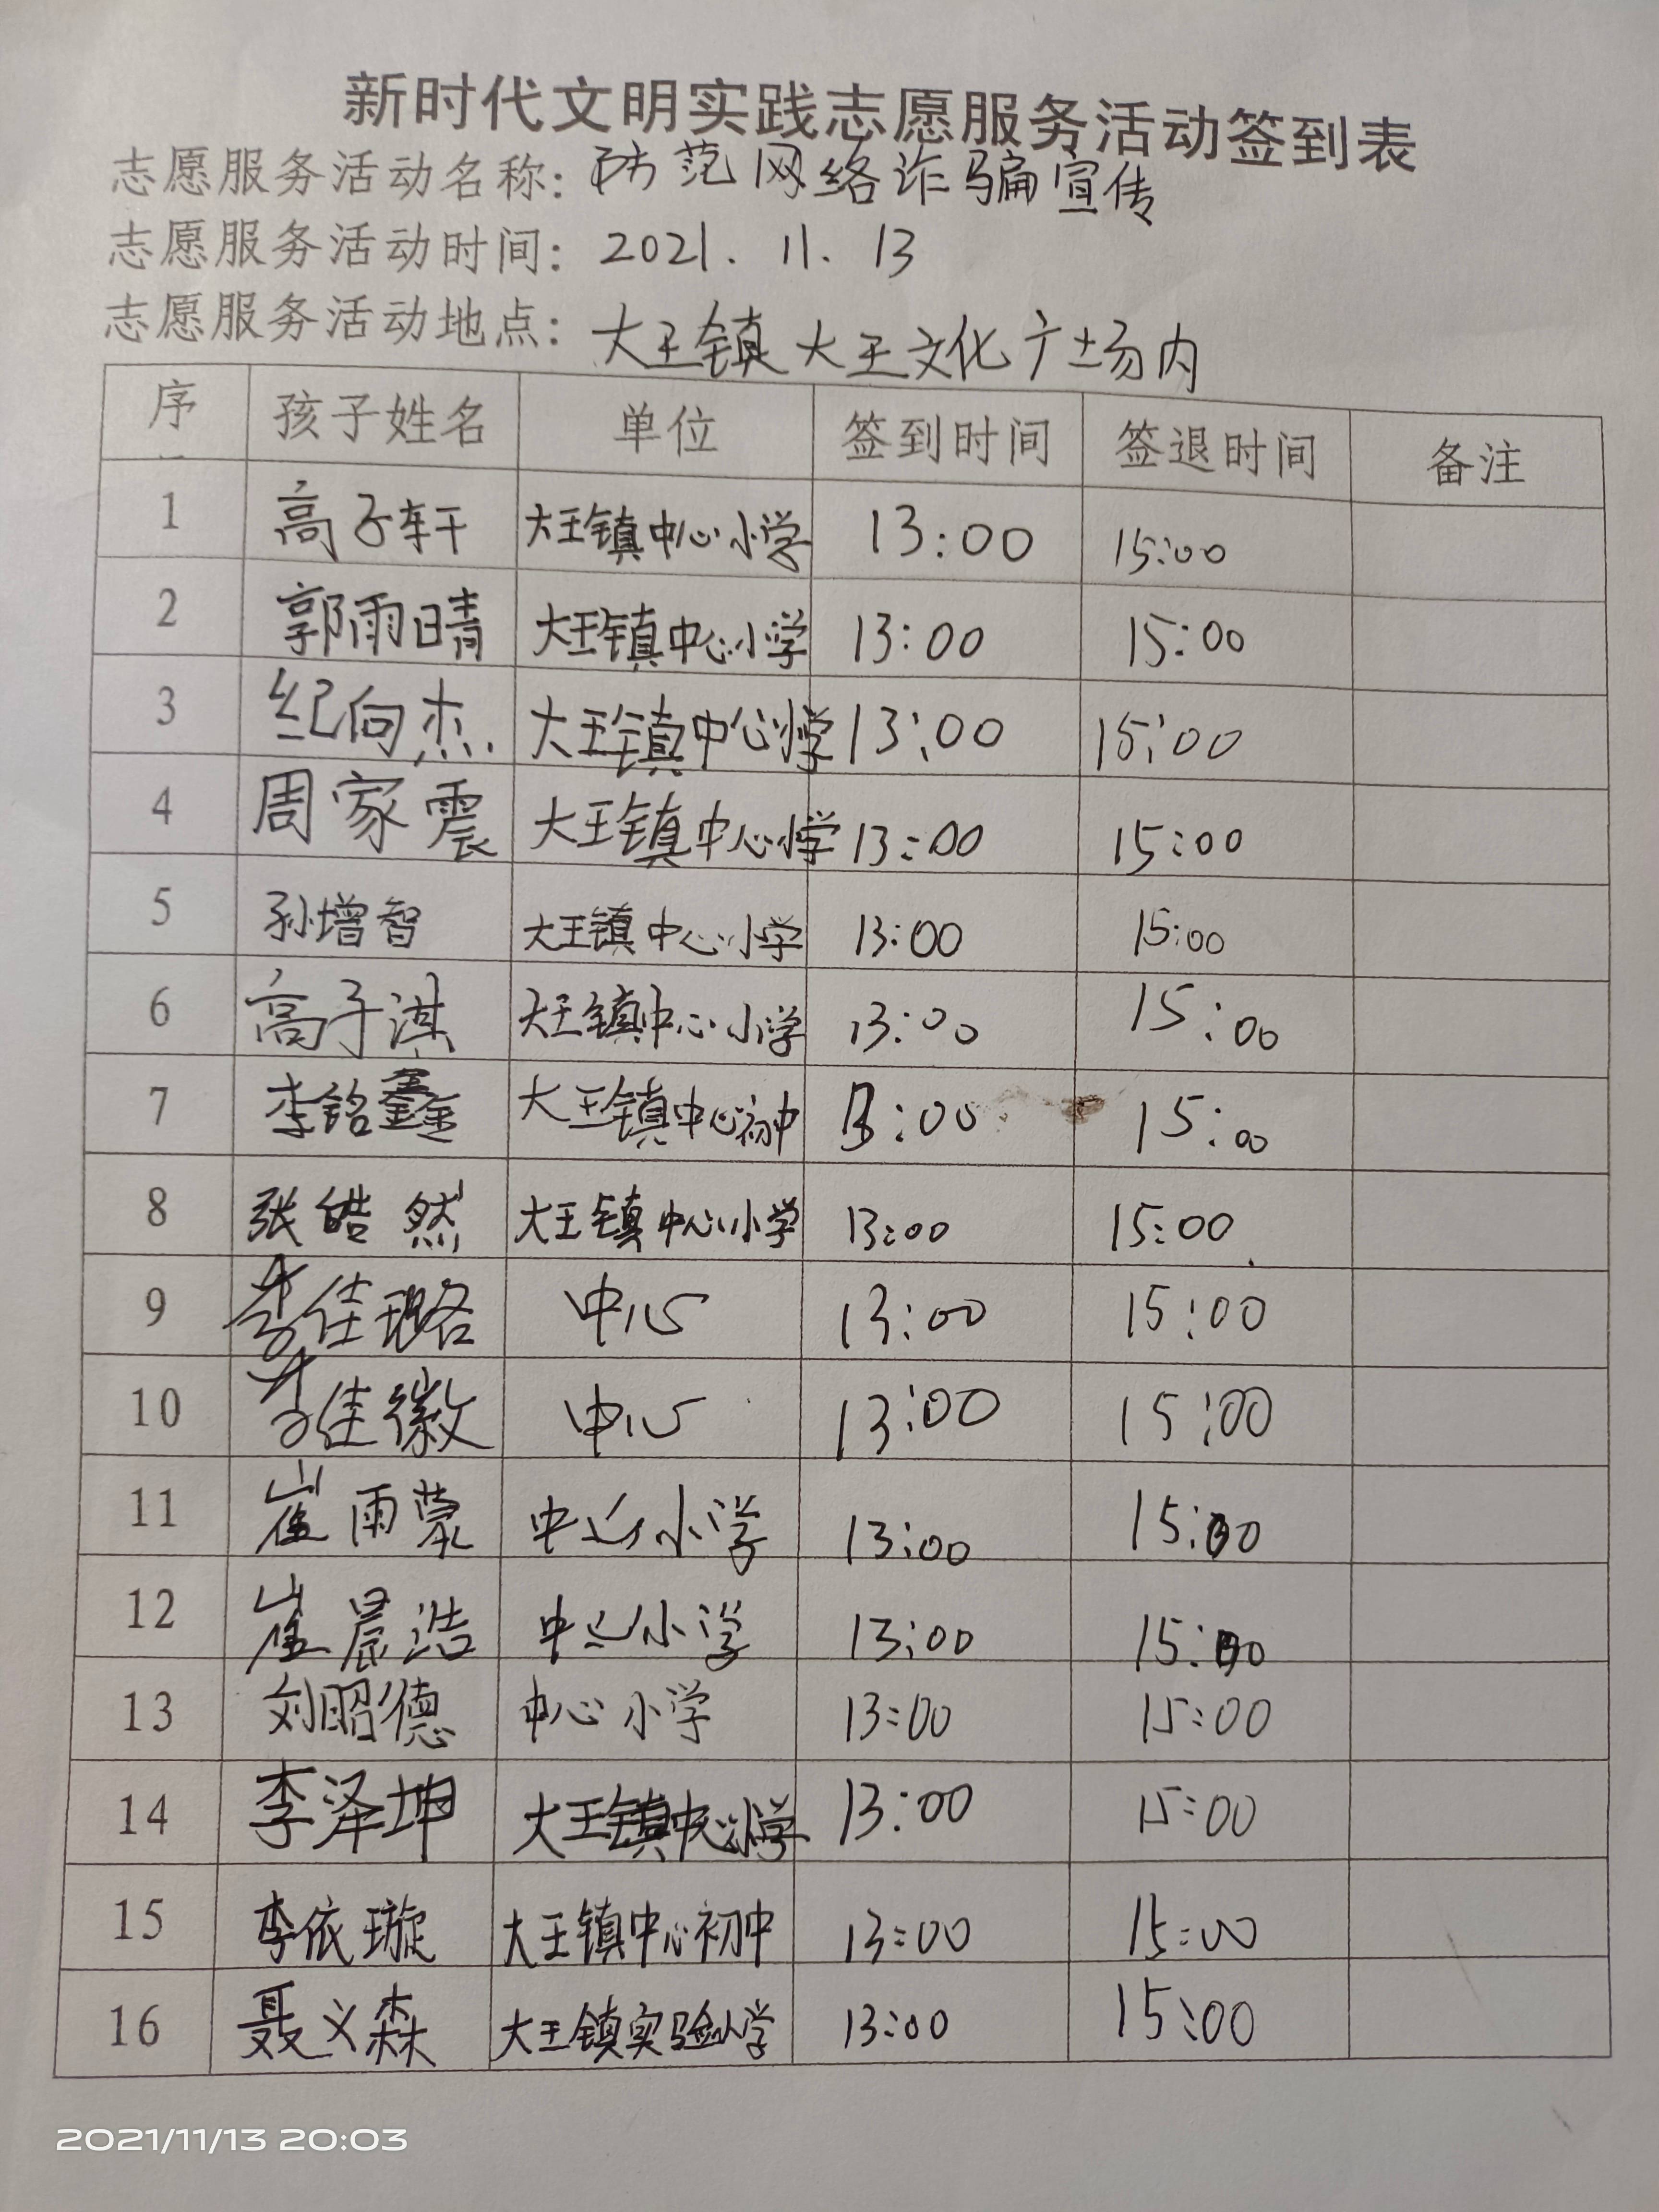 新时代文明实践志愿服务活动签到表
志愿服务活动名称：防范网络诈骗宣传
志愿服务活动时间：2021.11.13
志愿服务活动地点：大王镇大王文化广场内
序 孩子姓名 单位 签到时间 签退时间 备注
1 高子轩 大王镇中心小学 13:00 15:00
2 郭雨晴 大王镇中心小学 13:00 15:00
3 纪向杰 大王镇中心小学 13:00 15:00
4 周家震 大王镇中心小学 13:00 15:00
5 孙增智 大王镇中心小学 13:00 15:00
6 高子淇 大王镇中心小学 13:00 15:00
7 李铭鑫 大王镇中心初中 13:00 15:00
8 张皓然 大王镇中心小学 13:00 15:00
9 李佳璐 中心 13:00 15:00
10 李佳徽 中心 13:00 15:00
11 崔雨蒙 中心小学 13:00 15:00
12 崔晨浩 中心小学 13:00 15:00
13 刘昭德 中心小学 13:00 15:00
14 李泽坤 大王镇中心小学 13:00 15:00
15 李依璇 大王镇中心初中 13:00 15:00
16 聂义森 大王镇实验小学 13:00 15:00
2021/11/13 20:03